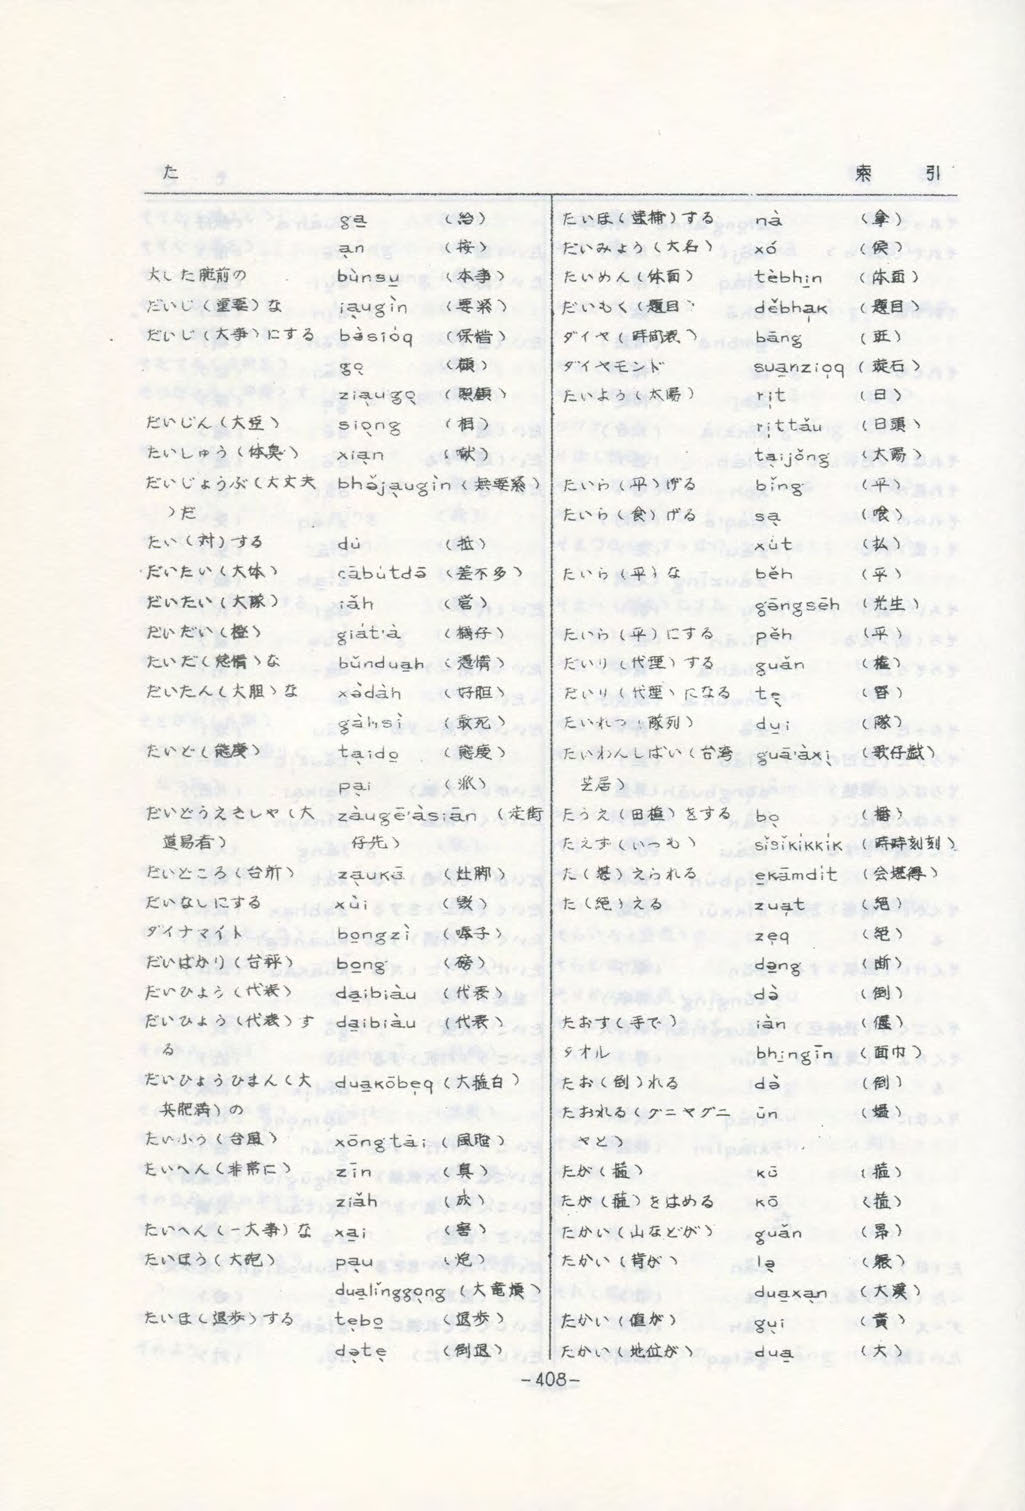 た
索 引
ga̲ (治)
ạn (按)
大した腕前の bùnsu̲ (本事)
だいじ(重要)な iạugìn (要緊)
だいじ(大事)にする bə̀sióq (保惜)
gọ (顧)
ziạugọ (照顧)
だいじん(大臣) siọng (相)
たいしゅう(体臭) xiạn (献)
だいじょうぶ(大丈夫 bhə̌jạugìn (無要緊)
)だ
たい(対)する dú (抵)
だいたい(大体) cābútdə̄ (差不多)
だいたい(大隊) iǎh (営)
だいだい(橙) giát'à (橘仔)
たいだ(怠惰)な bǔndua̲h (憑惰)
だいたん(大胆)な xə̀dàh (好胆)
gàhsì (敢死)
たいど(態度) tạido̲ (態度)
pại (派)
だいどうえきしゃ(大 zàugē'àsiān (走街
道易者) 仔先)
だいどころ(台所) zạukā (灶脚)
だいなしにする xùi (毀)
ダイナマイト bo̲ngzì
だいばかり(台秤) bo̲ng (磅)
だいひょう(代表) da̲ibiàu (代表)
だいひょう(代表)す da̲ibiàu (代表)
る
だいひょうひまん(大 dua̲kōbeq (大箍白)
兵肥満)の
たいふう(台風) xōngtāi (風颱)
たいへん(非常に) zīn (真)
ziǎh (成)
たいへん(一大事)な xa̲i (害)
たいほう(大砲) pạu (炮)
dua̲lǐnggọng (大竜熕)
たいほ(退歩)する tẹbo̲ (退歩)
dətẹ (倒退)
たいほ(逮捕)する nà (拿)
だいみょう(大名) xó (侯)
たいめん(体面) tèbhi̲n (体面)
だいもく(題目) děbha̲k (題目)
ダイヤ(時間表) bāng (班)
ダイヤモンド sua̲nzioq (璇石)
たいよう(太陽) ri̲t (日)
ri̲ttǎu (日頭)
tạijǒng (太陽)
たいら(平)げる bǐng (平)
たいら(食)げる sạ
xút (払)
たいら(平)な běh (平)
gə̄ngsēh (光生)
たいら(平)にする pěh (平)
だいり(代理)する guǎn (権)
だいり(代理)になる tẹ (替)
たいれつ(隊列) du̲i (隊)
たいわんしばい(台湾 guā'àxị (歌仔戯)
芝居)
たうえ(田植)をする bọ (播)
たえず(いつも) sǐsǐkikkik (時時刻刻)
た(堪)えられる e̲kāmdit (会堪得)
た(絶)える zua̲t (絶)
ze̲q (絶)
də̲ng (断)
də̀ (倒)
たおす(手で) iàn (偃)
タオル bhi̲ngīn (面巾)
たお(倒)れる də̀ (倒)
たおれる(グニャグニ ūn
ャと)
たが(箍) kō (箍)
たが(箍)をはめる kō (箍)
たかい(山などが) guǎn
たかい(背が) lə̣
dua̲xạn (大漢)
たかい(値が) gụi (貴)
たかい(地位が) dua̲ (大)
-408-